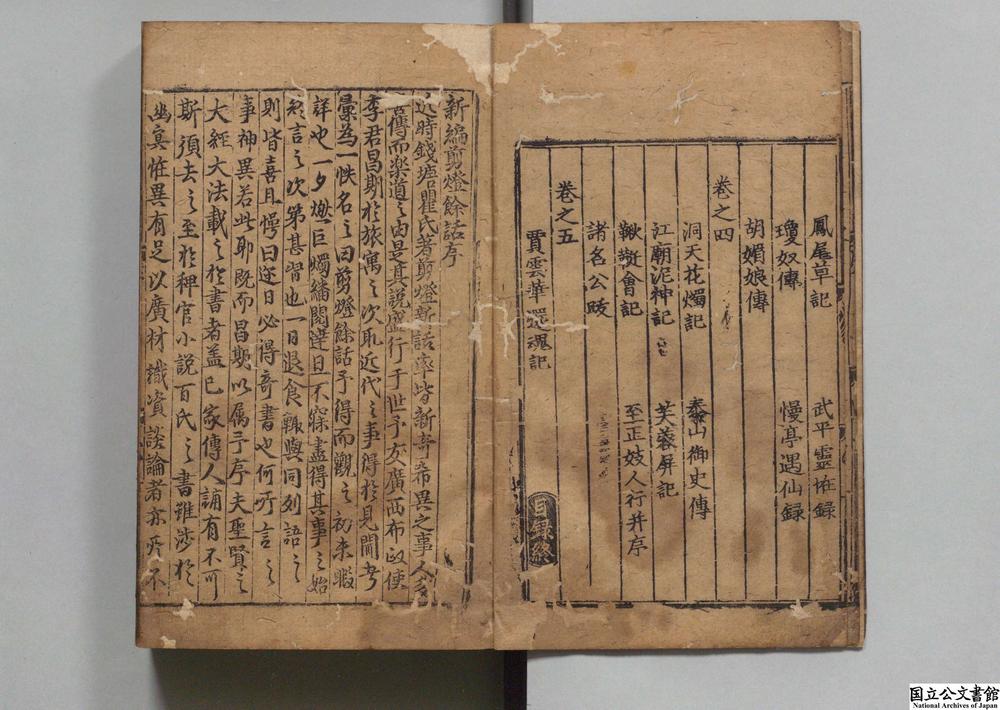 鳳尾草記 武平靈怪録
瓊奴傳 慢亭遇仙録
胡媚娘傳
卷之四
洞天花燭記 泰山御史傳
江廟泥神記 芙蓉屏記
鞦韆會記 至正妓人行并序
諸名公跋
卷之五
賈雲華還魂記
目録終
新編剪燈餘話序
近時錢塘瞿氏著剪燈新話率皆新竒希異之事人多
傳而楽道之由是其説盛行于世予友廣西布政使
李君昌期於旅寓之次取近代之事得於見聞者
彙為一帙名之曰剪燈餘話予得而觀之初未暇
詳也一夕燃巨燭繙閲達旦不寐盡得其事之始
末言之次第甚習也一日退食輒與同列語之
則皆喜且愕曰迩日必得竒書也何所言之
事神異若此耶既而昌期以属予序夫聖賢之
大經大法載之於書者盖已家傳人誦有不可
斯須去之至於稗官小説百氏之書雖渉於
幽冥恠異有足以廣材識資談論者亦所不
国立公文書館
National Archives of Japan